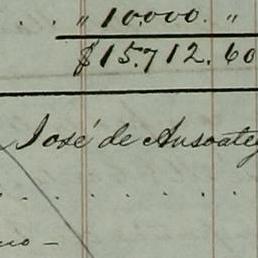 . . . " 10.000. "
$15.712.60
José de Ansoateg
. . . . . .
no —